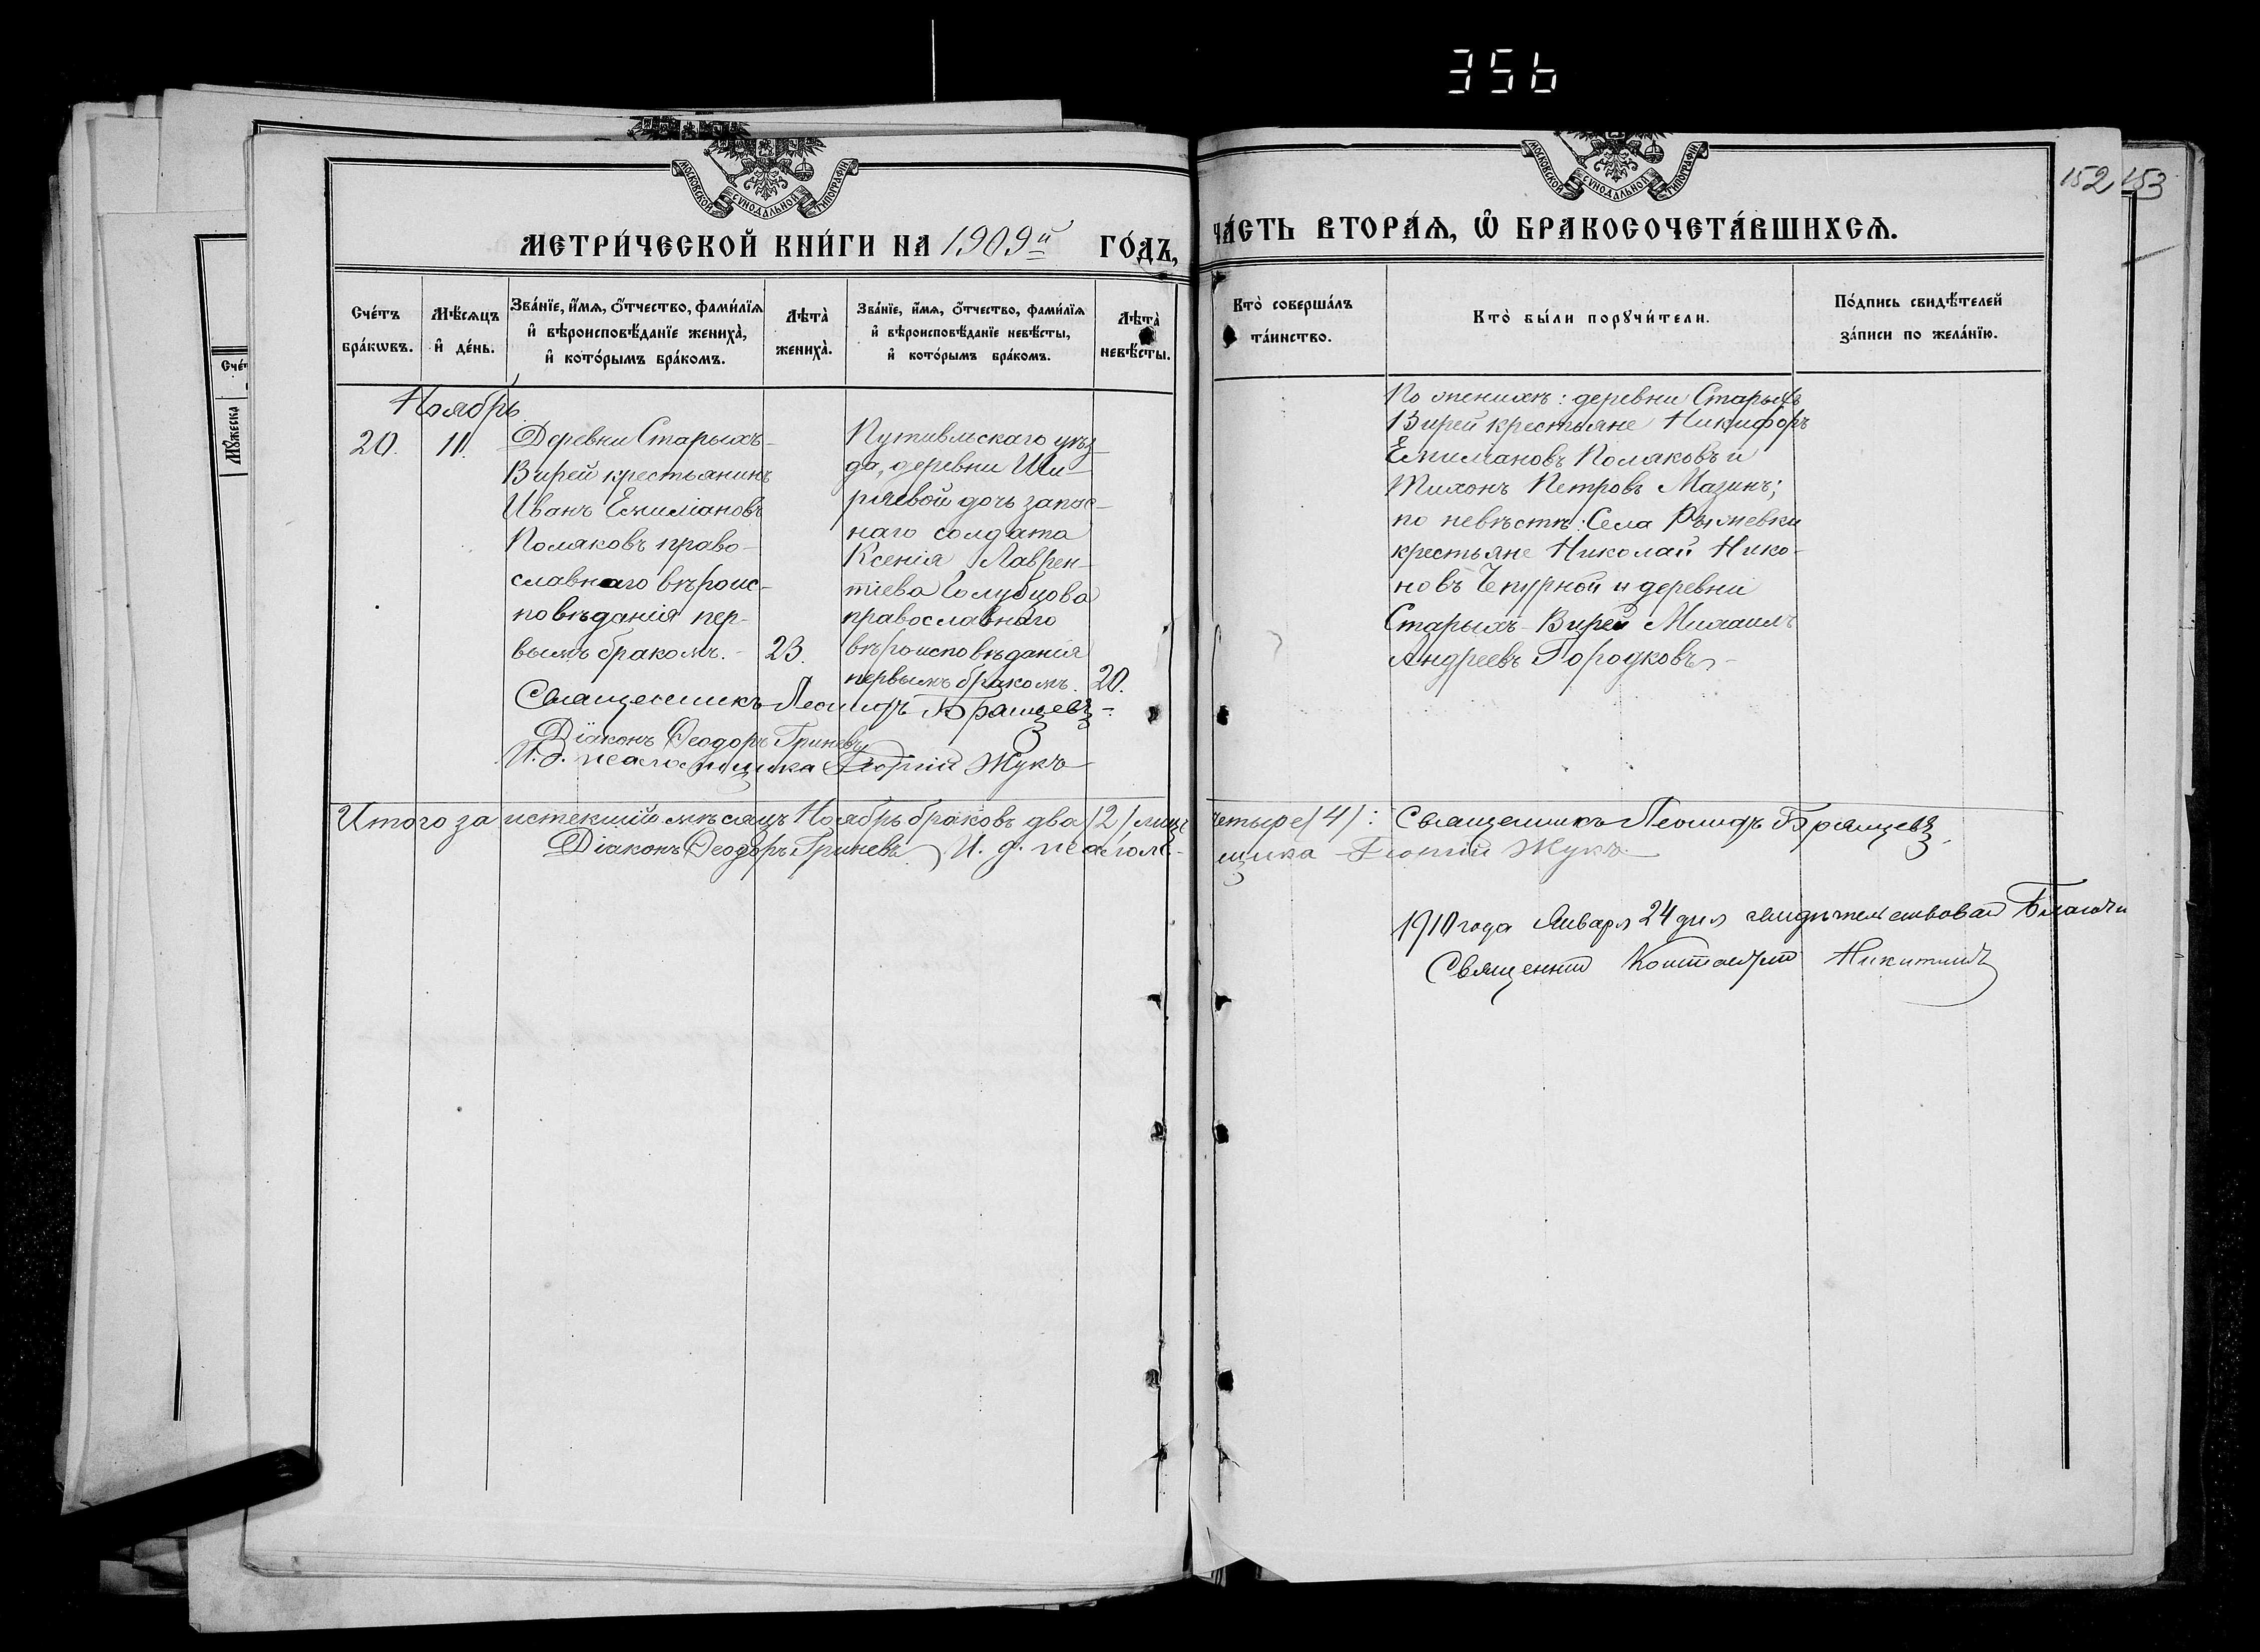 356
152 153
МОСКОВСКОЙ СУНОДАЛЬНОЙ ТИПОГРАФІИ
МОСКОВСКОЙ СУНОДАЛЬНОЙ ТИПОГРАФІИ
МЕТРИ́ЧЕСКОЙ КНИ́ГИ НА 1909й ГО́ДЪ,
ЧА́СТЬ ВТОРА́Ѧ, Ѡ҆ БРАКОСОЧЕТА́ВШИХСѦ.
Сче́тъ бра́кѡвъ.
Мѣ́сяцъ и҆ де́нь.
Зва́нїе, и҆́мя, ѻ҆́тчество, фами́лїя
и҆ вѣроисповѣ́данїе жениха̀,
и҆ кото́рымъ бра́комъ.
Лѣта̀ жениха̀.
Зва́нїе, и҆́мя, ѻ҆́тчество, фами́лїя
и҆ вѣроисповѣ́данїе невѣ́сты,
и҆ кото́рымъ бра́комъ.
Лѣта̀ невѣ́сты.
Кто̀ соверша́лъ
та́инство.
Кто̀ бы́ли порꙋчи́тели.
По́дпись свидѣ́телей
за́писи по жела́нїю.
Сче́т
Мꙋ́жеска
Ноябрь
20.
11.
Деревни Старыхъ-
Вирей крестьянинъ
Иванъ Емиліановъ
Поляковъ право-
славнаго вѣроис-
повѣданія пер-
вымъ бракомъ.-
23.
Путивльскаго уѣз-
да, деревни Ши-
ряевой дочь запас-
наго солдата
Ксенія Лаврен-
тіева Голубцова
православнаго
вѣроисповѣданія
первымъ бракомъ.
20.
По женихѣ: деревни Старыхъ
Вирей крестьяне Никифоръ
Емиліановъ Поляковъ и
Тихонъ Петровъ Мазинъ;
по невѣстѣ: Села Рыжевки
крестьяне Николай Нико-
новъ Чепурной и деревни
Старыхъ-Вирей Михаилъ
Андреевъ Городковъ.-
Священникъ Леонидъ Брянцевъ-
Діаконъ Ѳеодоръ Гриневъ
И. д. псаломщика Георгій Жукъ
Итого за истекшій мѣсяцъ Ноябрь браковъ два /2/ лицъ четыре /4/: Священникъ Леонидъ Брянцевъ.
Діаконъ Ѳеодоръ Гриневъ. И. д. псалом-щика Георгій Жукъ
1910 года Января 24 дня свидѣтельствовал Благочи
Священник Константин Никитинъ